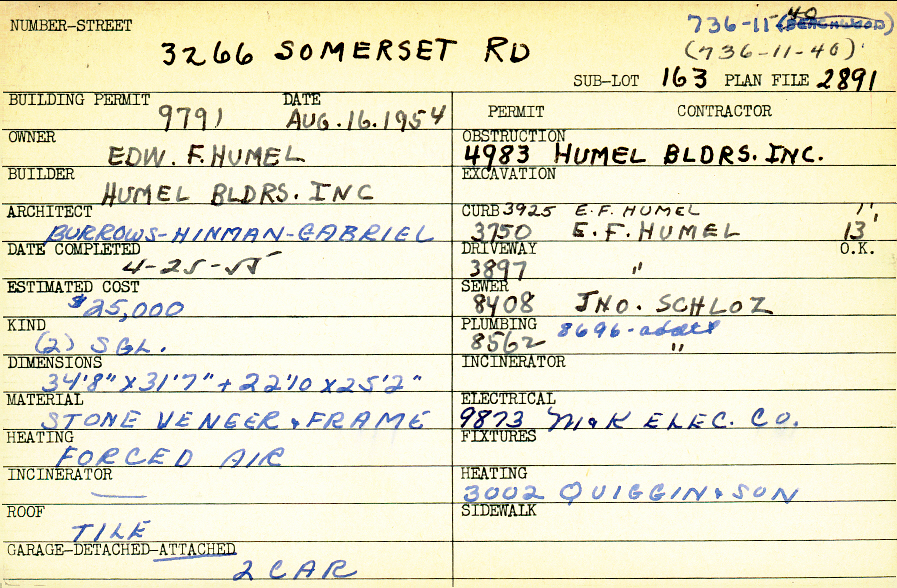 NUMBER-STREET 736-11-40 (BEACHWOOD)
3266 SOMERSET RD (736-11-40)
SUB-LOT 163 PLAN FILE 2891
BUILDING PERMIT 9791 DATE AUG.16.1954
OWNER EDW. F. HUMEL
BUILDER HUMEL BLDRS. INC
ARCHITECT BURROWS-HINMAN-GABRIEL
DATE COMPLETED 4-25-55
ESTIMATED COST $25,000
KIND (2) SGL.
DIMENSIONS 34'8" X 31'7" + 22'10 X 25'2"
MATERIAL STONE VENEER & FRAME
HEATING FORCED AIR
INCINERATOR —
ROOF TILE
GARAGE-DETACHED-ATTACHED 2 CAR
PERMIT CONTRACTOR
OBSTRUCTION 4983 HUMEL BLDRS. INC.
EXCAVATION
CURB 3925 E.F. HUMEL 1'
3750 E.F. HUMEL 13'
DRIVEWAY 3897 " O.K.
SEWER 8408 JNO. SCHLOZ
PLUMBING 8562 8696-addtl "
INCINERATOR
ELECTRICAL 9873 M&K ELEC. CO.
FIXTURES
HEATING 3002 QUIGGIN & SON
SIDEWALK